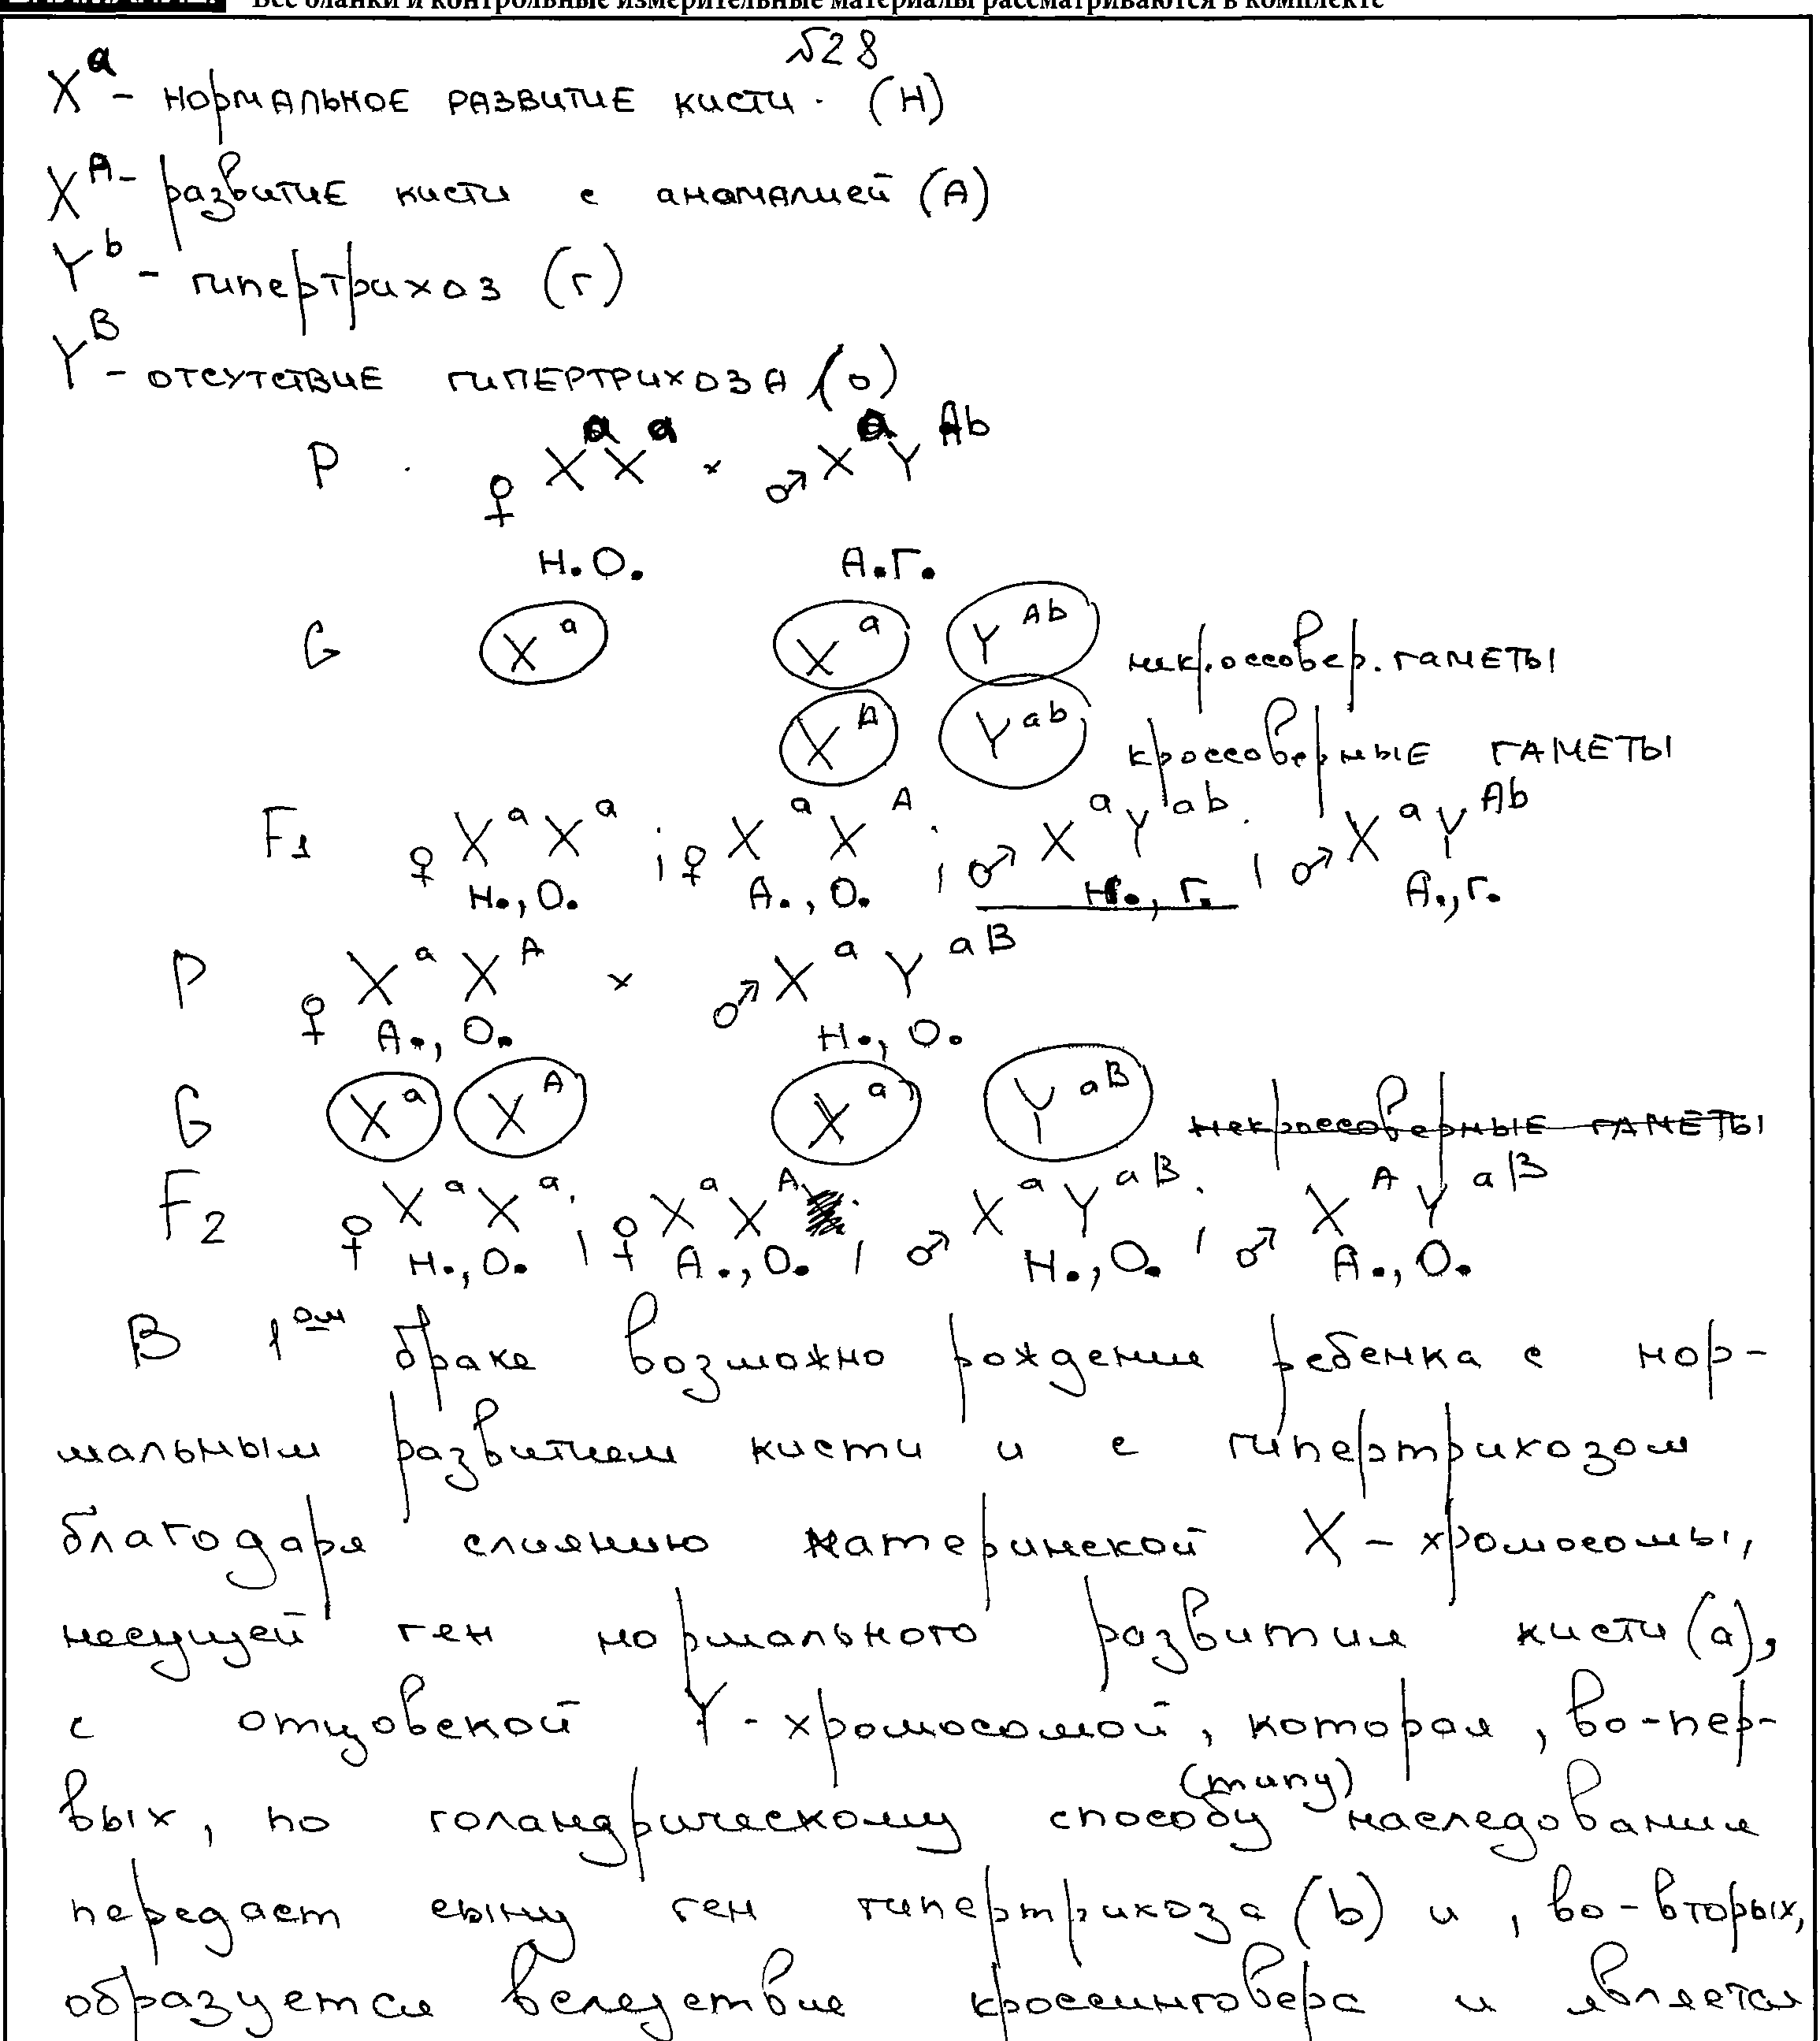 Все бланки и контрольные измерительные материалы рассматриваются в комплекте
№28
X^a - нормальное развитие кисти. (Н)
X^A - развитие кисти с аномалией (А)
Y^b - гипертрихоз (г)
Y^B - отсутствие гипертрихоза (о)
P ♀ X^a X^a × ♂ X^a Y^Ab
Н.О. А.Г.
G X^a X^a Y^Ab некроссовер. гаметы
X^A Y^ab кроссоверные гаметы
F1 ♀ X^a X^a ; ♀ X^a X^A ; ♂ X^a Y^ab ; ♂ X^a Y^Ab
Н., О. А., О. Н., Г. А., Г.
P ♀ X^a X^A × ♂ X^a Y^aB
А., О. Н., О.
G X^a X^A X^a Y^aB некроссоверные гаметы
F2 ♀ X^a X^a ; ♀ X^a X^A ; ♂ X^a Y^aB ; ♂ X^A Y^aB
Н., О. А., О. Н., О. А., О.
В 1ом браке возможно рождение ребенка с нор-
мальным развитием кисти и с гипертрихозом
благодаря слиянию материнской X - хромосомы,
несущей ген нормального развития кисти (а),
с отцовской Y - хромосомой, которая, во-пер-
вых, по голандрическому способу (типу) наследования
передает сыну ген гипертрихоза (b) и, во-вторых,
образуется вследствие кроссинговера и является